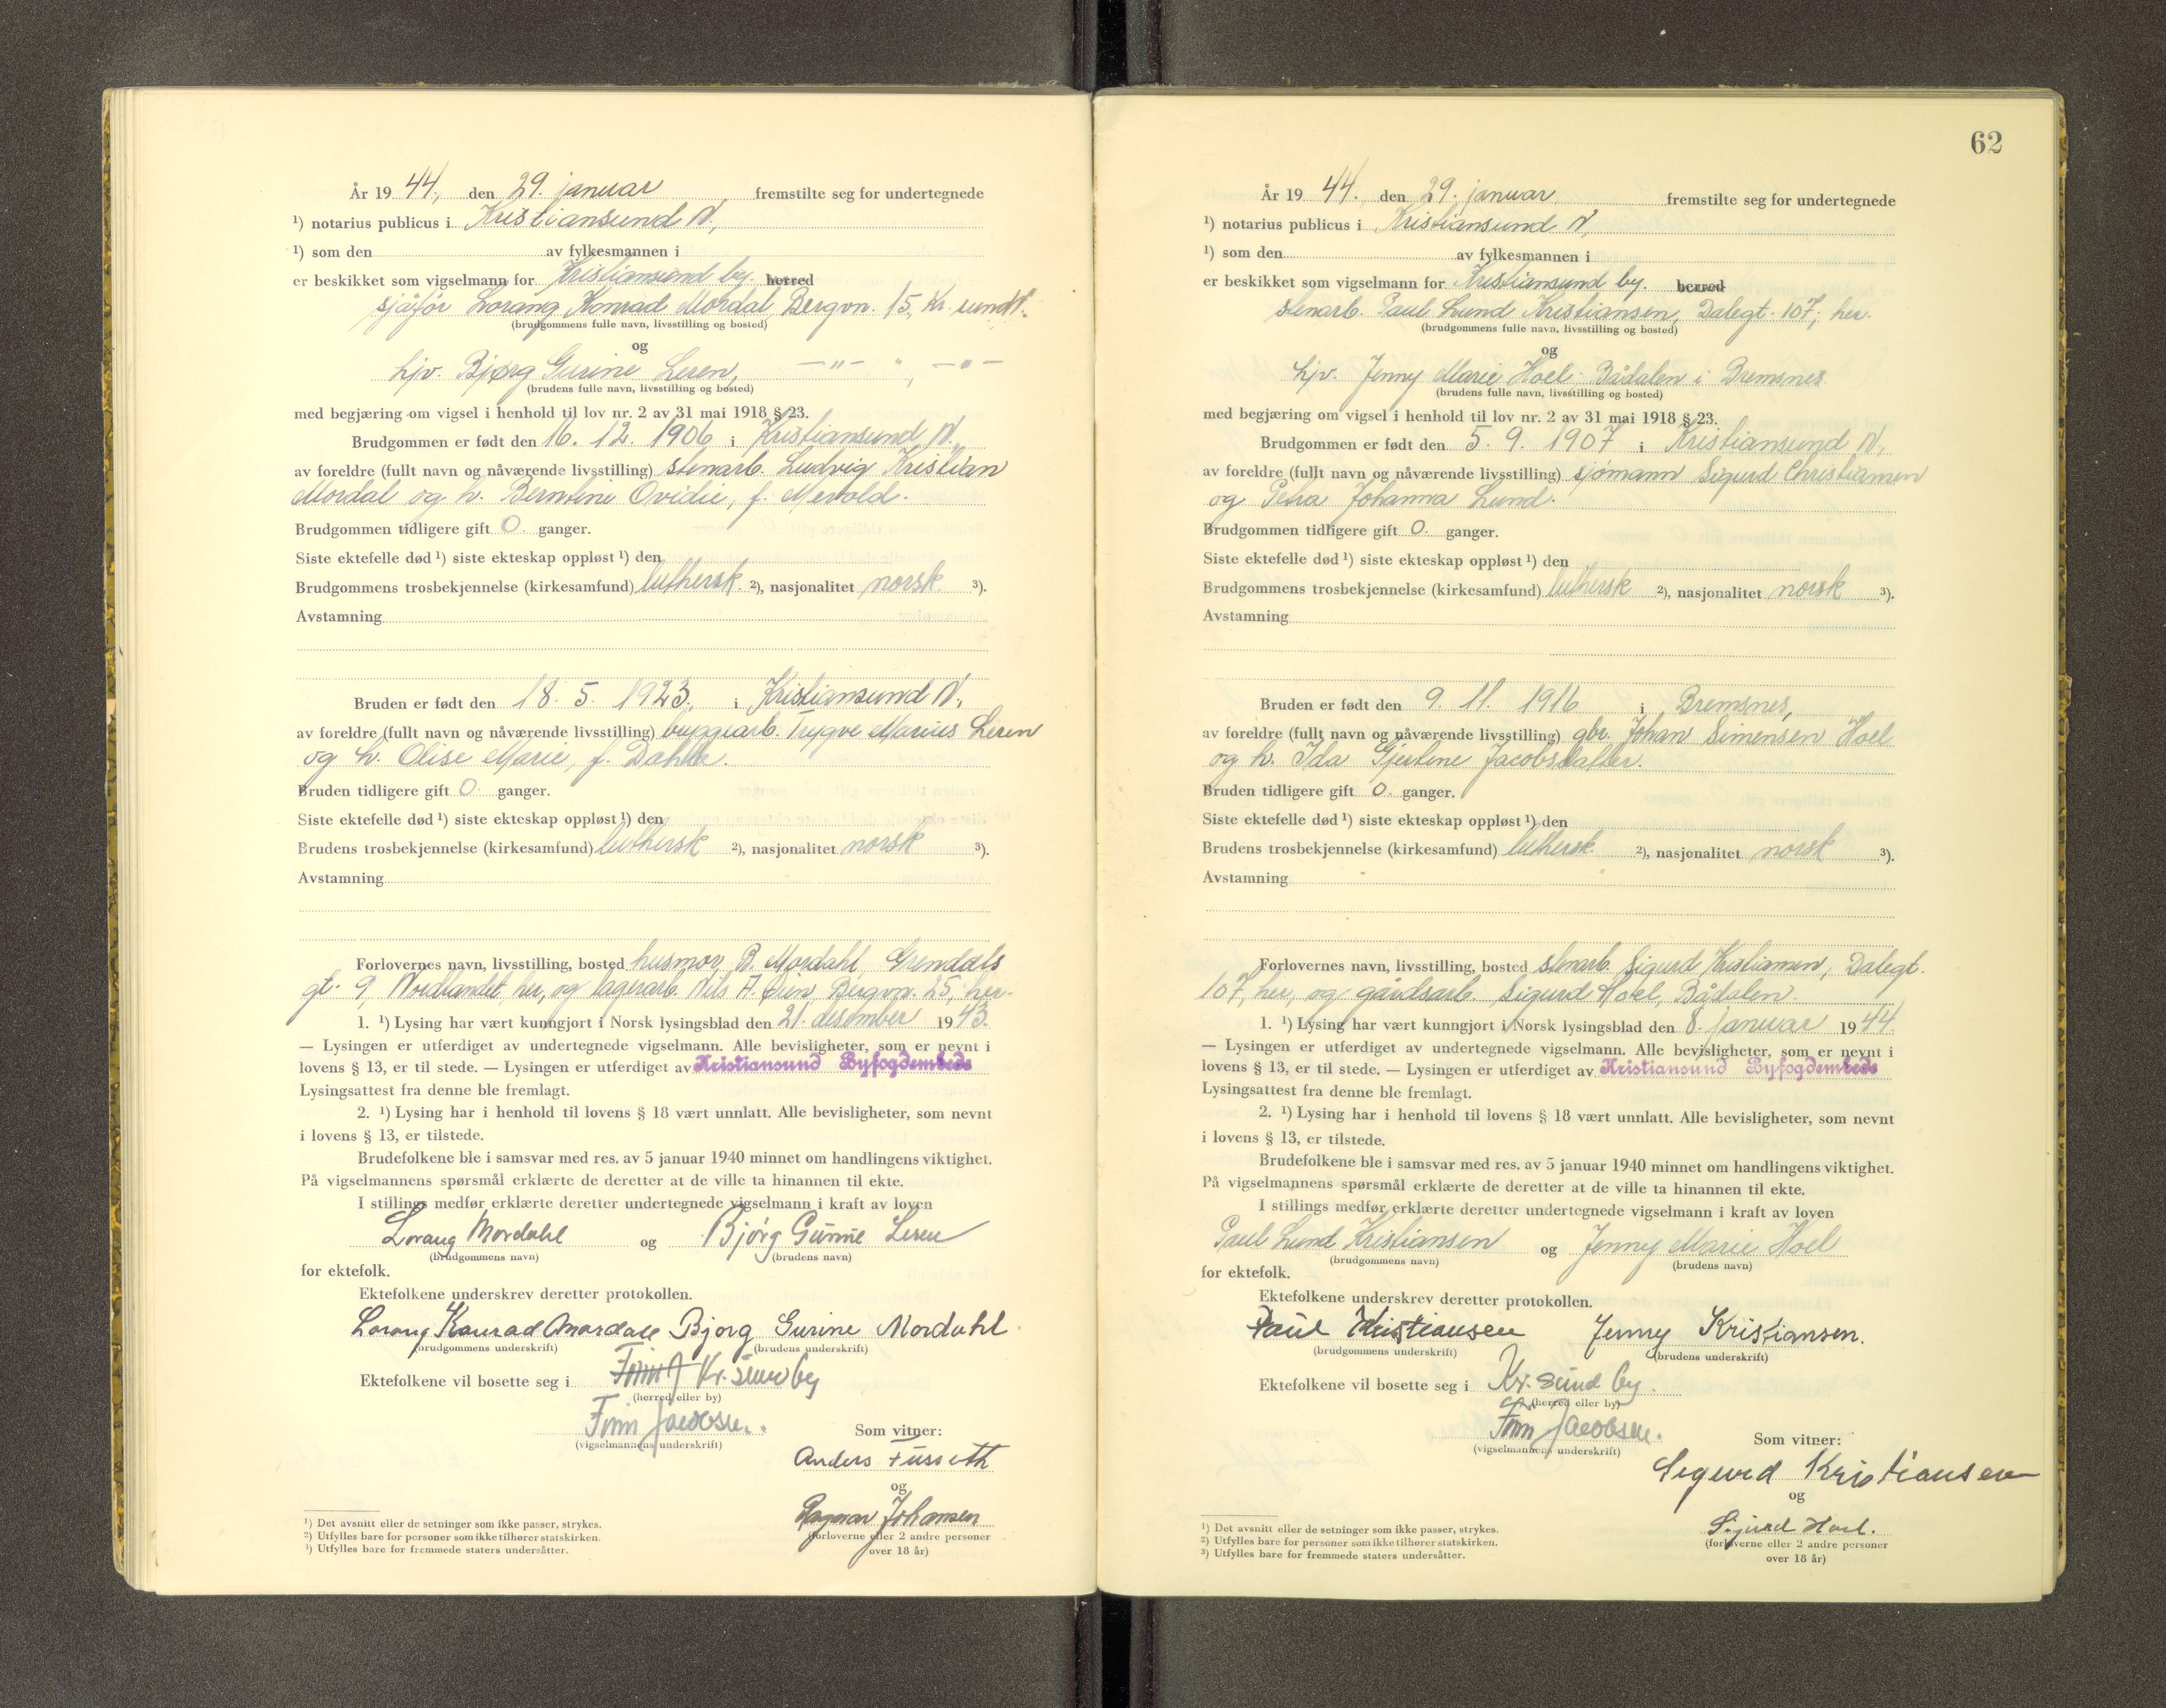 År 19 44., den 29. januar fremstilte seg for undertegnede
¹) notarius publicus i Kristiansund N,
¹) som den av fylkesmannen i
er beskikket som vigselmann for Kristiansund by. herred
sjåfør Lorang Konrad Mordal, Bergvn. 15, Kr. sund N.
(brudgommens fulle navn, livsstilling og bosted)
og
hjv. Bjørg Gurine Leren, —"— " , —"—
(brudens fulle navn, livsstilling og bosted)
med begjæring om vigsel i henhold til lov nr. 2 av 31 mai 1918 § 23.
Brudgommen er født den 16. 12. 1906 i Kristiansund N.,
av foreldre (fullt navn og nåværende livsstilling) stenarb. Ludvig Kristian
Mordal og h. Berntine Ovidie, f. Mevold.
Brudgommen tidligere gift 0 ganger.
Siste ektefelle død ¹) siste ekteskap oppløst ¹) den
Brudgommens trosbekjennelse (kirkesamfund) luthersk. ²), nasjonalitet norsk. ³).
Avstamning
Bruden er født den 18. 5. 1923. i Kristiansund N.,
av foreldre (fullt navn og nåværende livsstilling) byggearb. Trygve Marius Leren
og h. Olise Marie, f. Dahle.
Bruden tidligere gift 0 ganger.
Siste ektefelle død ¹) siste ekteskap oppløst ¹) den
Brudens trosbekjennelse (kirkesamfund) luthersk ²), nasjonalitet norsk ³).
Avstamning
Forlovernes navn, livsstilling, bosted husmor B. Mordahl, Grendals
gt. 9, Nordlandet, her, og lagerarb. Nils A. Øien, Bergvn. 25, her.
1. ¹) Lysing har vært kunngjort i Norsk lysingsblad den 21. desember 19 43.
— Lysingen er utferdiget av undertegnede vigselmann. Alle bevisligheter, som er nevnt i
lovens § 13, er til stede. — Lysingen er utferdiget av Kristiansund Byfogdembede
Lysingsattest fra denne ble fremlagt.
2. ¹) Lysing har i henhold til lovens § 18 vært unnlatt. Alle bevisligheter, som nevnt
i lovens § 13, er tilstede.
Brudefolkene ble i samsvar med res. av 5 januar 1940 minnet om handlingens viktighet.
På vigselmannens spørsmål erklærte de deretter at de ville ta hinannen til ekte.
I stillings medfør erklærte deretter undertegnede vigselmann i kraft av loven
Lorang Mordahl og Bjørg Gurine Leren
(brudgommens navn) (brudens navn)
for ektefolk.
Ektefolkene underskrev deretter protokollen.
Lorang Konrad Mordall Bjorg Gurine Mordahl
(brudgommens underskrift) (brudens underskrift)
Ektefolkene vil bosette seg i Kr. sund by
(herred eller by)
Finn Jacobsen.
(vigselmannens underskrift)
Som vitner:
Anders Fusseth
og
Ragnar Johansen
(forloverne eller 2 andre personer
over 18 år)
¹) Det avsnitt eller de setninger som ikke passer, strykes.
²) Utfylles bare for personer som ikke tilhører statskirken.
³) Utfylles bare for fremmede staters undersåtter.
62
År 19 44., den 29. januar fremstilte seg for undertegnede
¹) notarius publicus i Kristiansund N,
¹) som den av fylkesmannen i
er beskikket som vigselmann for Kristiansund by. herred
stenarb. Paul Lund Kristiansen, Dalegt. 107, her.
(brudgommens fulle navn, livsstilling og bosted)
og
hjv. Jenny Marie Hoel, Bådalen i Bremsnes.
(brudens fulle navn, livsstilling og bosted)
med begjæring om vigsel i henhold til lov nr. 2 av 31 mai 1918 § 23.
Brudgommen er født den 5. 9. 1907 i Kristiansund N,
av foreldre (fullt navn og nåværende livsstilling) sjømann Sigurd Christiansen
og Petra Johanna Lund.
Brudgommen tidligere gift 0. ganger.
Siste ektefelle død ¹) siste ekteskap oppløst ¹) den
Brudgommens trosbekjennelse (kirkesamfund) luthersk ²), nasjonalitet norsk ³).
Avstamning
Bruden er født den 9. 11. 1916 i Bremsnes,
av foreldre (fullt navn og nåværende livsstilling) gbr. Johan Simensen Hoel
og h. Ida Gjertine Jacobsdatter.
Bruden tidligere gift 0. ganger.
Siste ektefelle død ¹) siste ekteskap oppløst ¹) den
Brudens trosbekjennelse (kirkesamfund) luthersk ²), nasjonalitet norsk ³).
Avstamning
Forlovernes navn, livsstilling, bosted stenarb. Sigurd Kristiansen, Dalegt.
107, her, og gårdsarb. Sigurd Hoel, Bådalen.
1. ¹) Lysing har vært kunngjort i Norsk lysingsblad den 8. januar 19 44.
— Lysingen er utferdiget av undertegnede vigselmann. Alle bevisligheter, som er nevnt i
lovens § 13, er til stede. — Lysingen er utferdiget av Kristiansund Byfogdembede
Lysingsattest fra denne ble fremlagt.
2. ¹) Lysing har i henhold til lovens § 18 vært unnlatt. Alle bevisligheter, som nevnt
i lovens § 13, er tilstede.
Brudefolkene ble i samsvar med res. av 5 januar 1940 minnet om handlingens viktighet.
På vigselmannens spørsmål erklærte de deretter at de ville ta hinannen til ekte.
I stillings medfør erklærte deretter undertegnede vigselmann i kraft av loven
Paul Lund Kristiansen og Jenny Marie Hoel
(brudgommens navn) (brudens navn)
for ektefolk.
Ektefolkene underskrev deretter protokollen.
Paul Kristiansen Jenny Kristiansen.
(brudgommens underskrift) (brudens underskrift)
Ektefolkene vil bosette seg i Kr. sund by.
(herred eller by)
Finn Jacobsen.
(vigselmannens underskrift)
Som vitner:
Sigurd Kristiansen
og
Sigurd Hoel.
(forloverne eller 2 andre personer
over 18 år)
¹) Det avsnitt eller de setninger som ikke passer, strykes.
²) Utfylles bare for personer som ikke tilhører statskirken.
³) Utfylles bare for fremmede staters undersåtter.